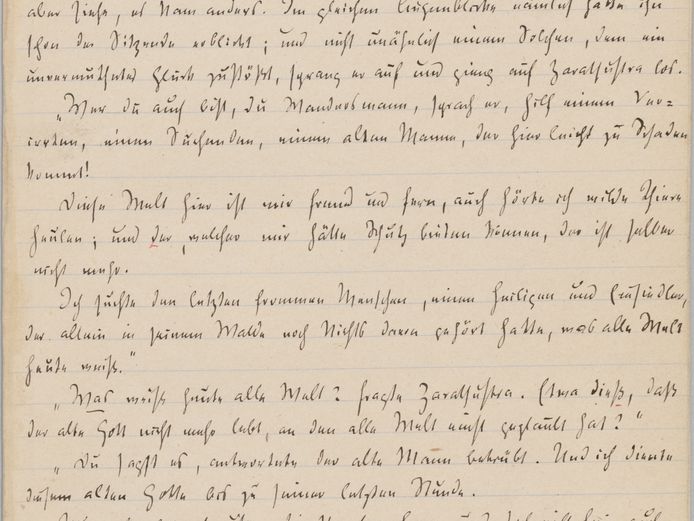 aber siehe, es kam anders. Im gleichen Augenblicke nämlich hatte ihn
schon der Sitzende erblickt; und nicht unähnlich einem Solchen, dem ein
unvermuthetes Glück zustößt, sprang er auf und gieng auf Zarathustra los.
„Wer du auch bist, du Wandersmann, sprach er, hilf einem Ver=
irrten, einem Suchenden, einem alten Manne, der hier leicht zu Schaden
kommt!
Diese Welt hier ist mir fremd und fern, auch hörte ich wilde Thiere
heulen; und der, welcher mir hätte Schutz bieten können, der ist selber
nicht mehr.
Ich suchte den letzten frommen Menschen, einen Heiligen und Einsiedler,
der allein in seinem Walde noch Nichts davon gehört hatte, was alle Welt
heute weiß."
„Was weiß heute alle Welt? fragte Zarathustra. Etwa dieß, daß
der alte Gott nicht mehr lebt, an den alle Welt einst geglaubt hat?"
„Du sagst es, antwortete der alte Mann betrübt. Und ich diente
diesem alten Gotte bis zu seiner letzten Stunde.